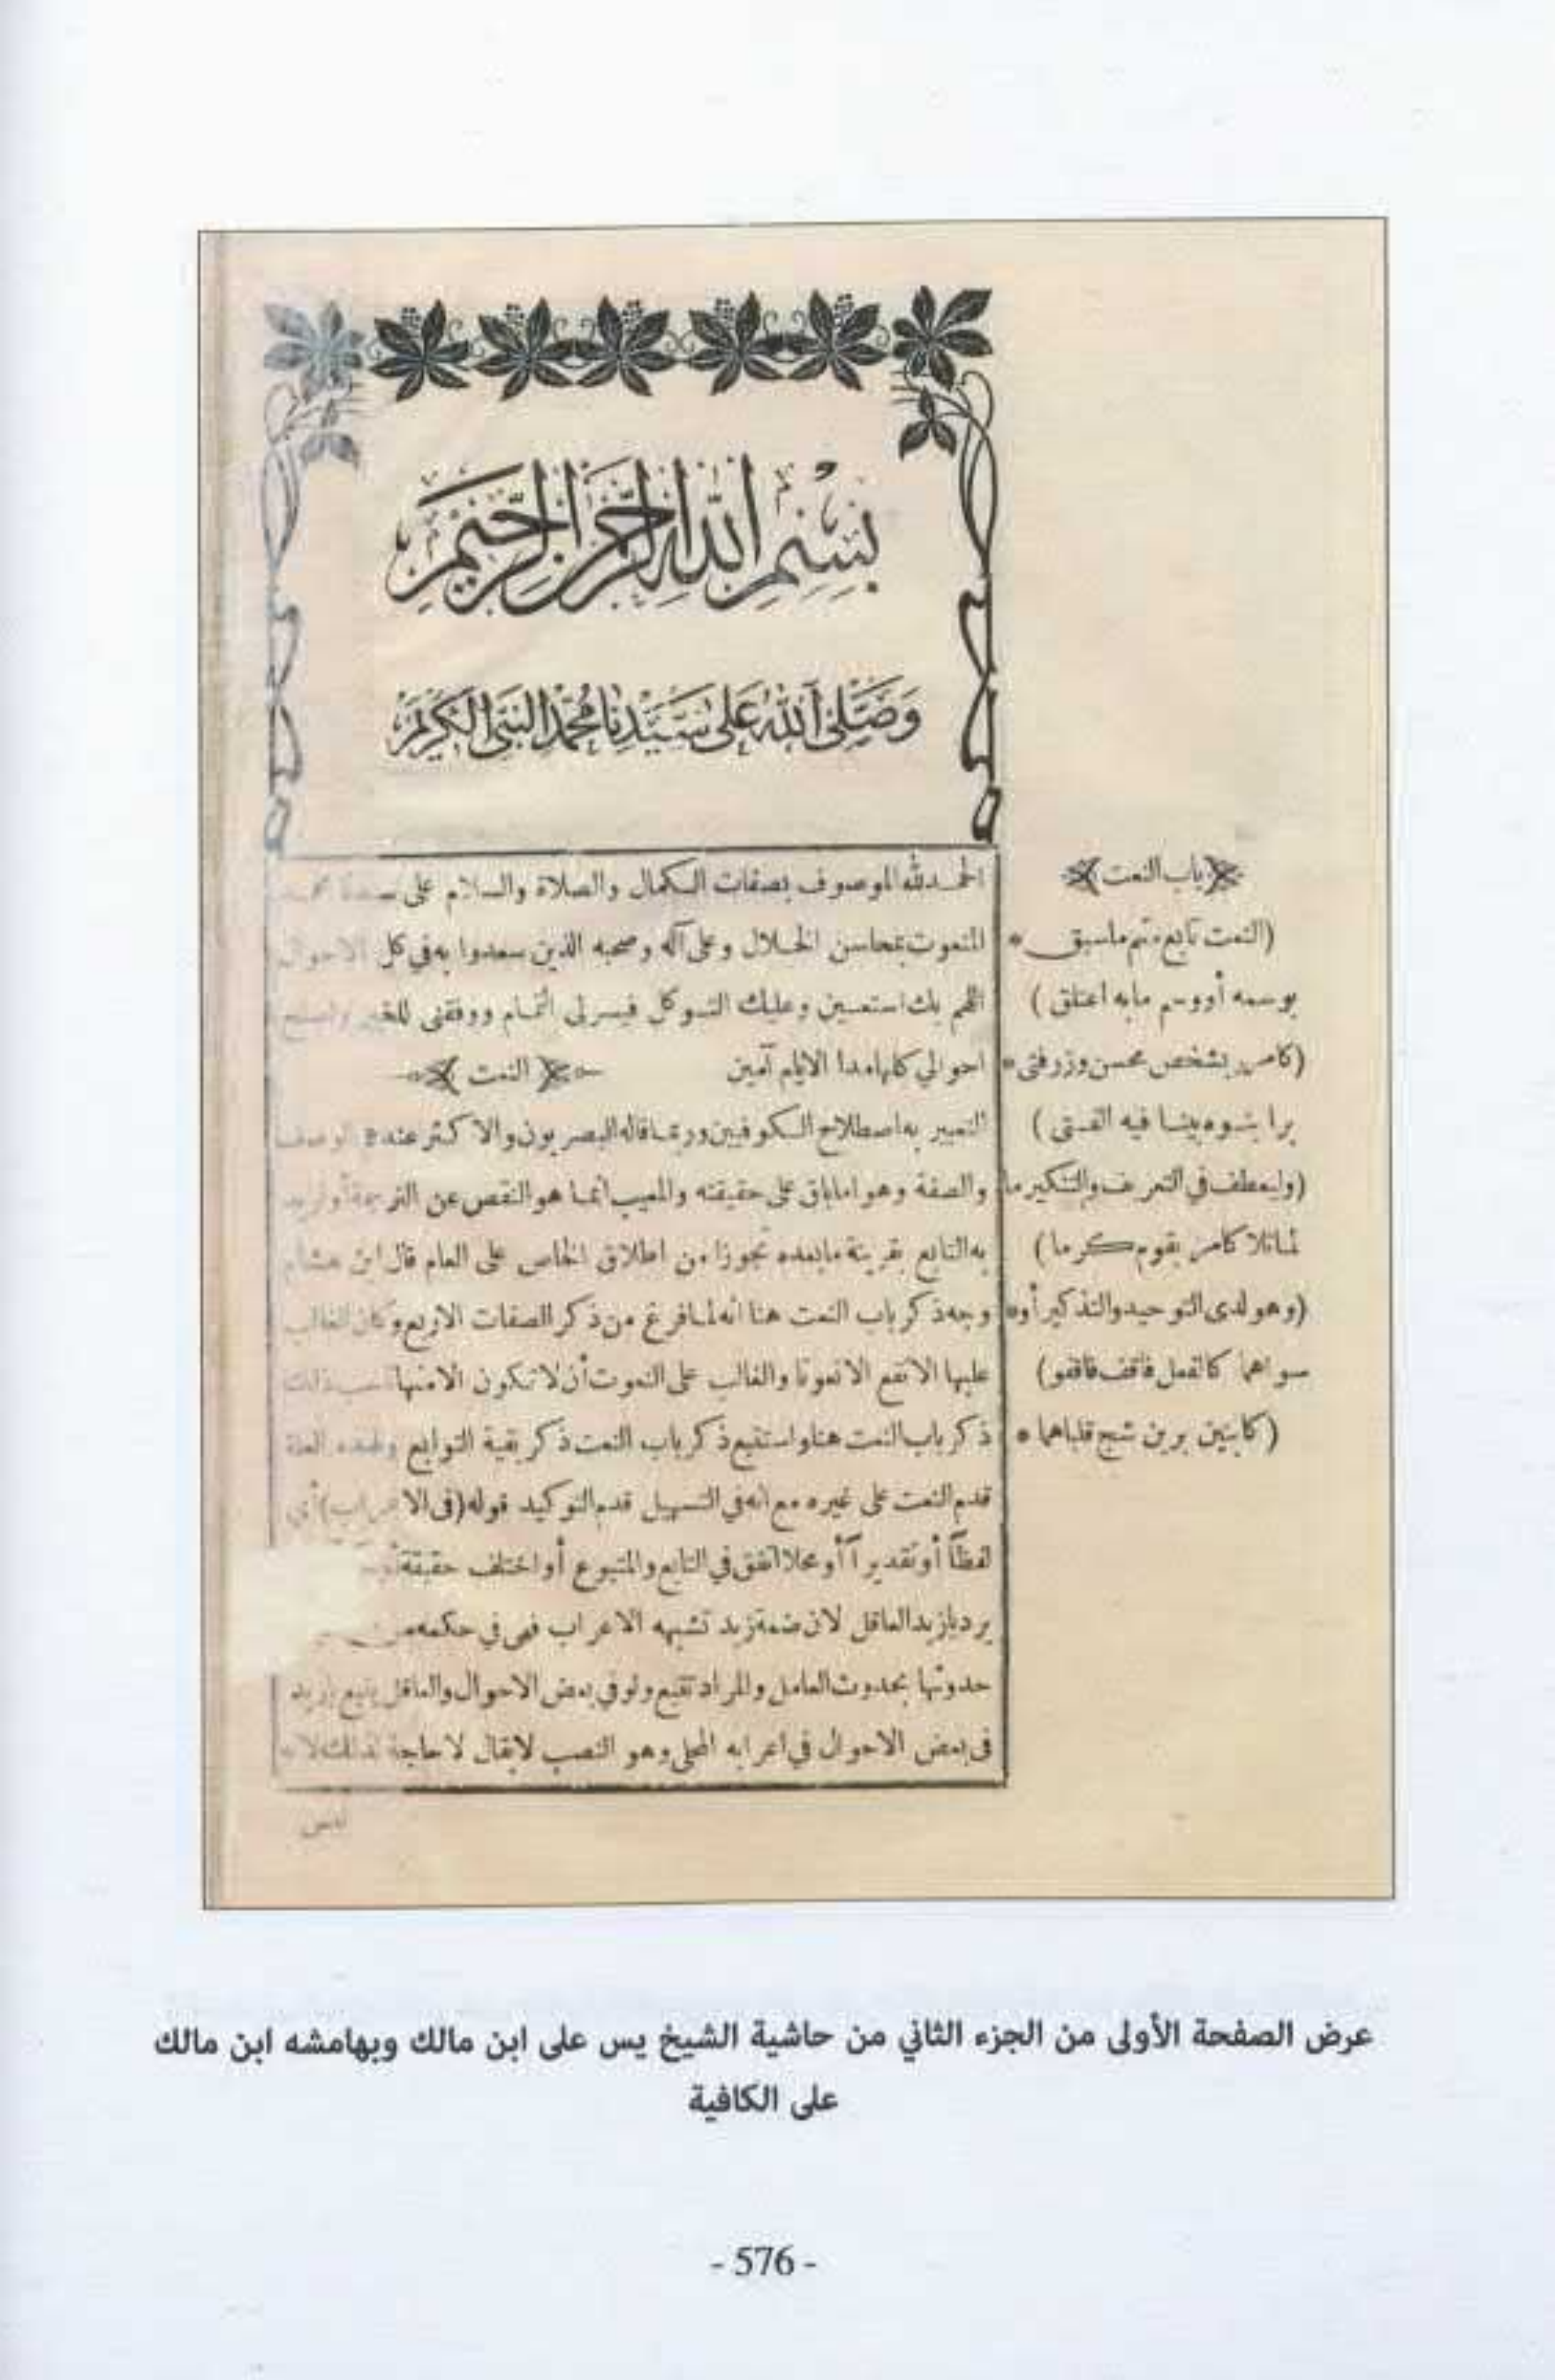 بسم الله الرحمن الرحيم
وصلى الله على سيدنا محمد النبي الكريم
الحمد لله الموصوف بصفات الكمال والصلاة والسلام على سيدنا محمد
المنعوت بمحاسن الخلال وعلى آله وصحبه الذين سعدوا به في كل الاحوال
اللهم بك استعين وعليك التوكل فيسر لى التمام ووفقنى للخير واصلح
احوالي كلها مدا الايام آمين
﴿ النعت ﴾
التعبير به اصطلاح الكوفيين وربما قاله البصريون والاكثر عنده الوصف
والصفة وهو اما باق على حقيقته والمعيب انما هو النقص عن الترجمة أو أريد
به التابع بقرينة ما بعده تجوزا من اطلاق الخاص على العام قال ابن هشام
وجه ذكر باب النعت هنا انه لما فرغ من ذكر الصفات الاربع وكان الغالب
عليها الا تقع الا نعوتا والغالب على النعوت أن لا تكون الا منها ذلك
ذكر باب النعت هنا واستتبع ذكر باب النعت ذكر بقية التوابع ولهذه العلة
قدم النعت على غيره مع أنه في التسهيل قدم التوكيد قوله (فى الاعراب) أي
لفظاً أو تقديراً أو محلا اتفق في التابع والمتبوع أو اختلف حقيقة
يرد يا زيد العاقل لان ضمة زيد تشبه الاعراب فهى في حكمه من
حدوثها بحدوث العامل والمراد تتبع ولو في بعض الاحوال والعاقل يتبع يا زيد
فى بعض الاحوال في اعرابه المحلى وهو النصب لا يقال لا حاجة لذلك لان
﴿ باب النعت ﴾
(النعت تابع متم ما سبق *
بوسمه أو وسم ما به اعتلق )
(كامرر بشخص محسن وزر فتى *
برا بنوه بينا فيه الفتى )
(وليعطف في التعريف والتنكير ما
لما تلا كامرر بقوم كرما )
(وهو لدى التوحيد والتذكير أو *
سواهما كالفعل فاقف ما قفو)
(كابنين برين شج قلباهما *
عرض الصفحة الأولى من الجزء الثاني من حاشية الشيخ يس على ابن مالك وبهامشه ابن مالك
على الكافية
- 576 -